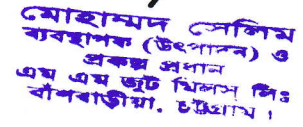 মোহাম্মদ সেলিম
ব্যবস্থাপক (উৎপাদন) ও
প্রকল্প প্রধান
এম এম জুট মিলস লিঃ
বাঁশবাড়ীয়া, চট্টগ্রাম।